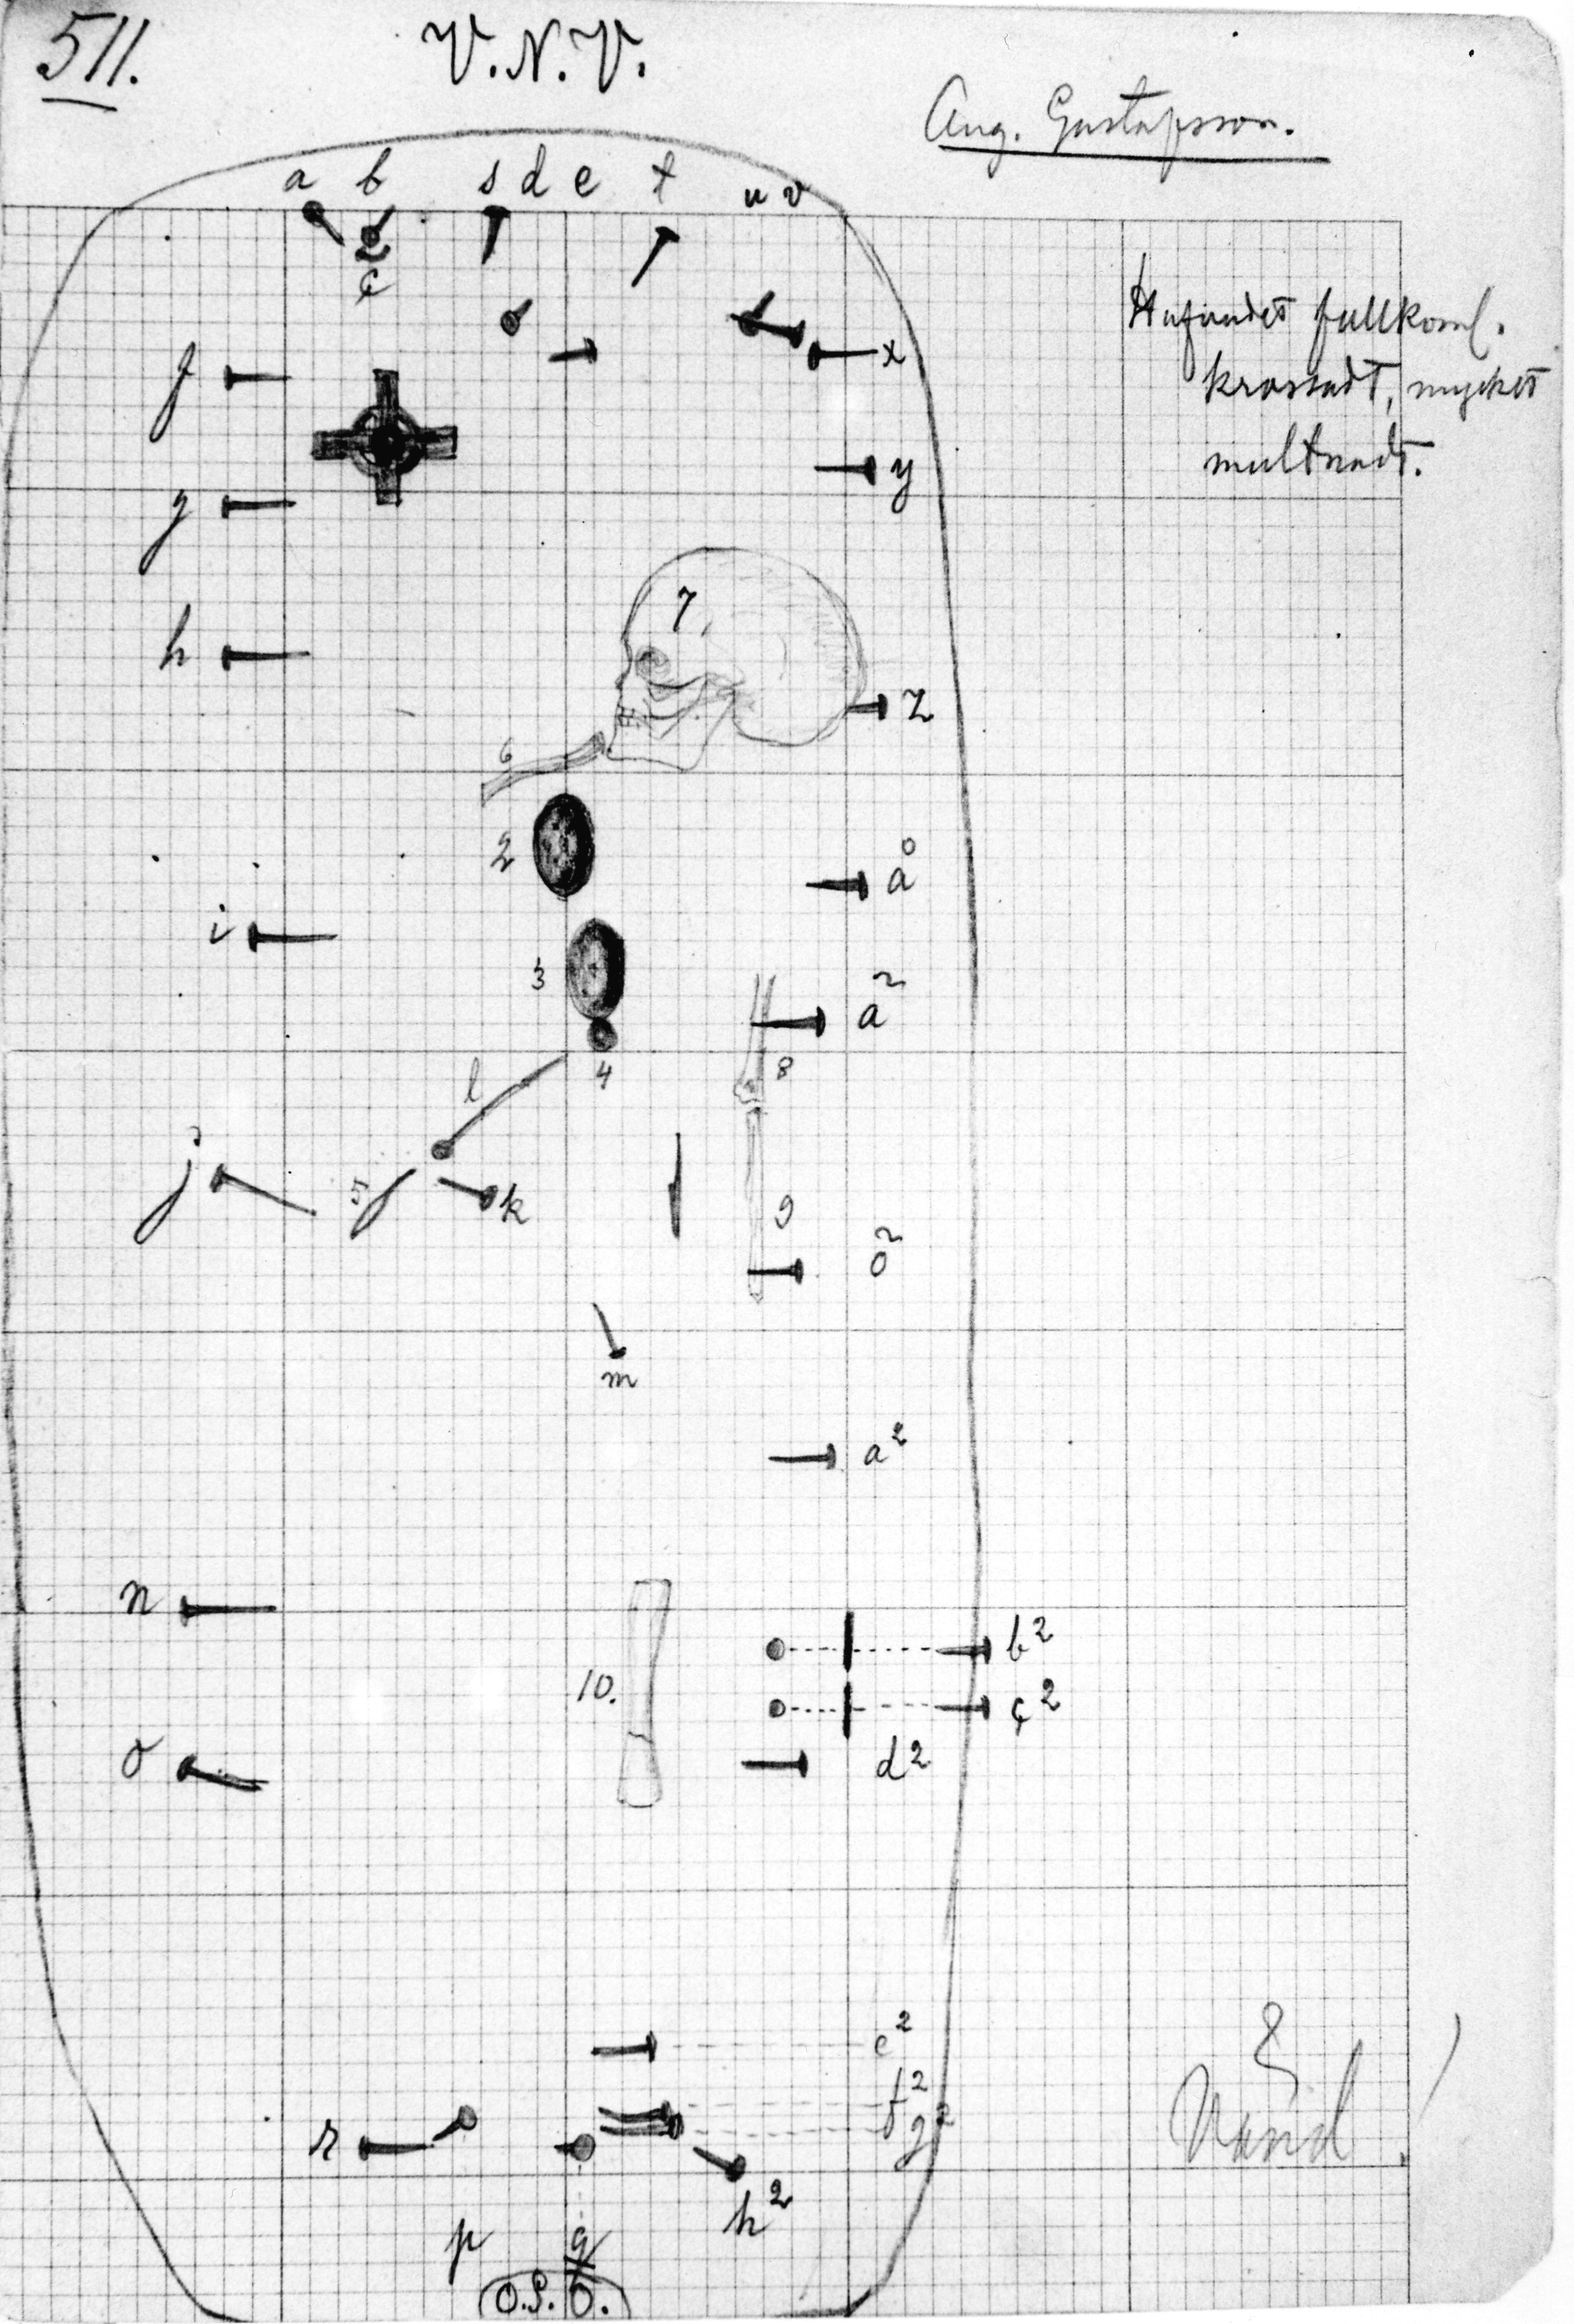 511.
V. N. V.
Aug. Gustafsson.
a b s d e t u v
c
Hufvudet fullkoml.
krossadt, mycket
multnadt.
f
x
y
g
7.
h
z
6
2
å
i
3
ä
l
4
8
j
5
k
9
ö
m
a²
n
b²
10.
c²
o
d²
e²
f²
g²
r
h²
p q
O.S.O.
Vänd!